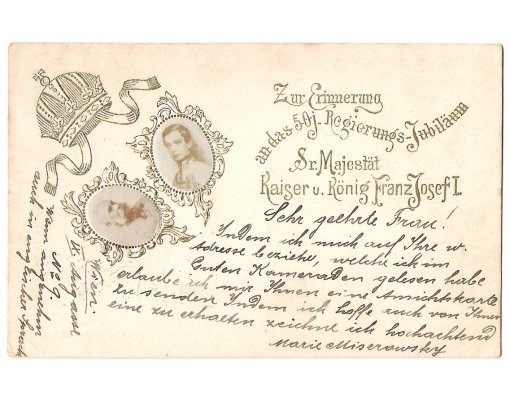 Zur Erinnerung
an das 50j. Regierungs-Jubiläum
Sr. Majestät
Kaiser u. König Franz Josef I.
Sehr geehrte Frau!
Indem ich mich auf Ihre w.
Adresse beziehe, welche ich im
Guten Kameraden gelesen habe
erlaube ich mir Ihnen eine Ansichtskarte
zu senden. Indem ich hoffe auch von Ihnen
eine zu erhalten zeichne ich hochachtend
Marie Miserowsky
Wien.
IX. gasse
N. 29.
Wenn angenehm
auch in englischer Sprach